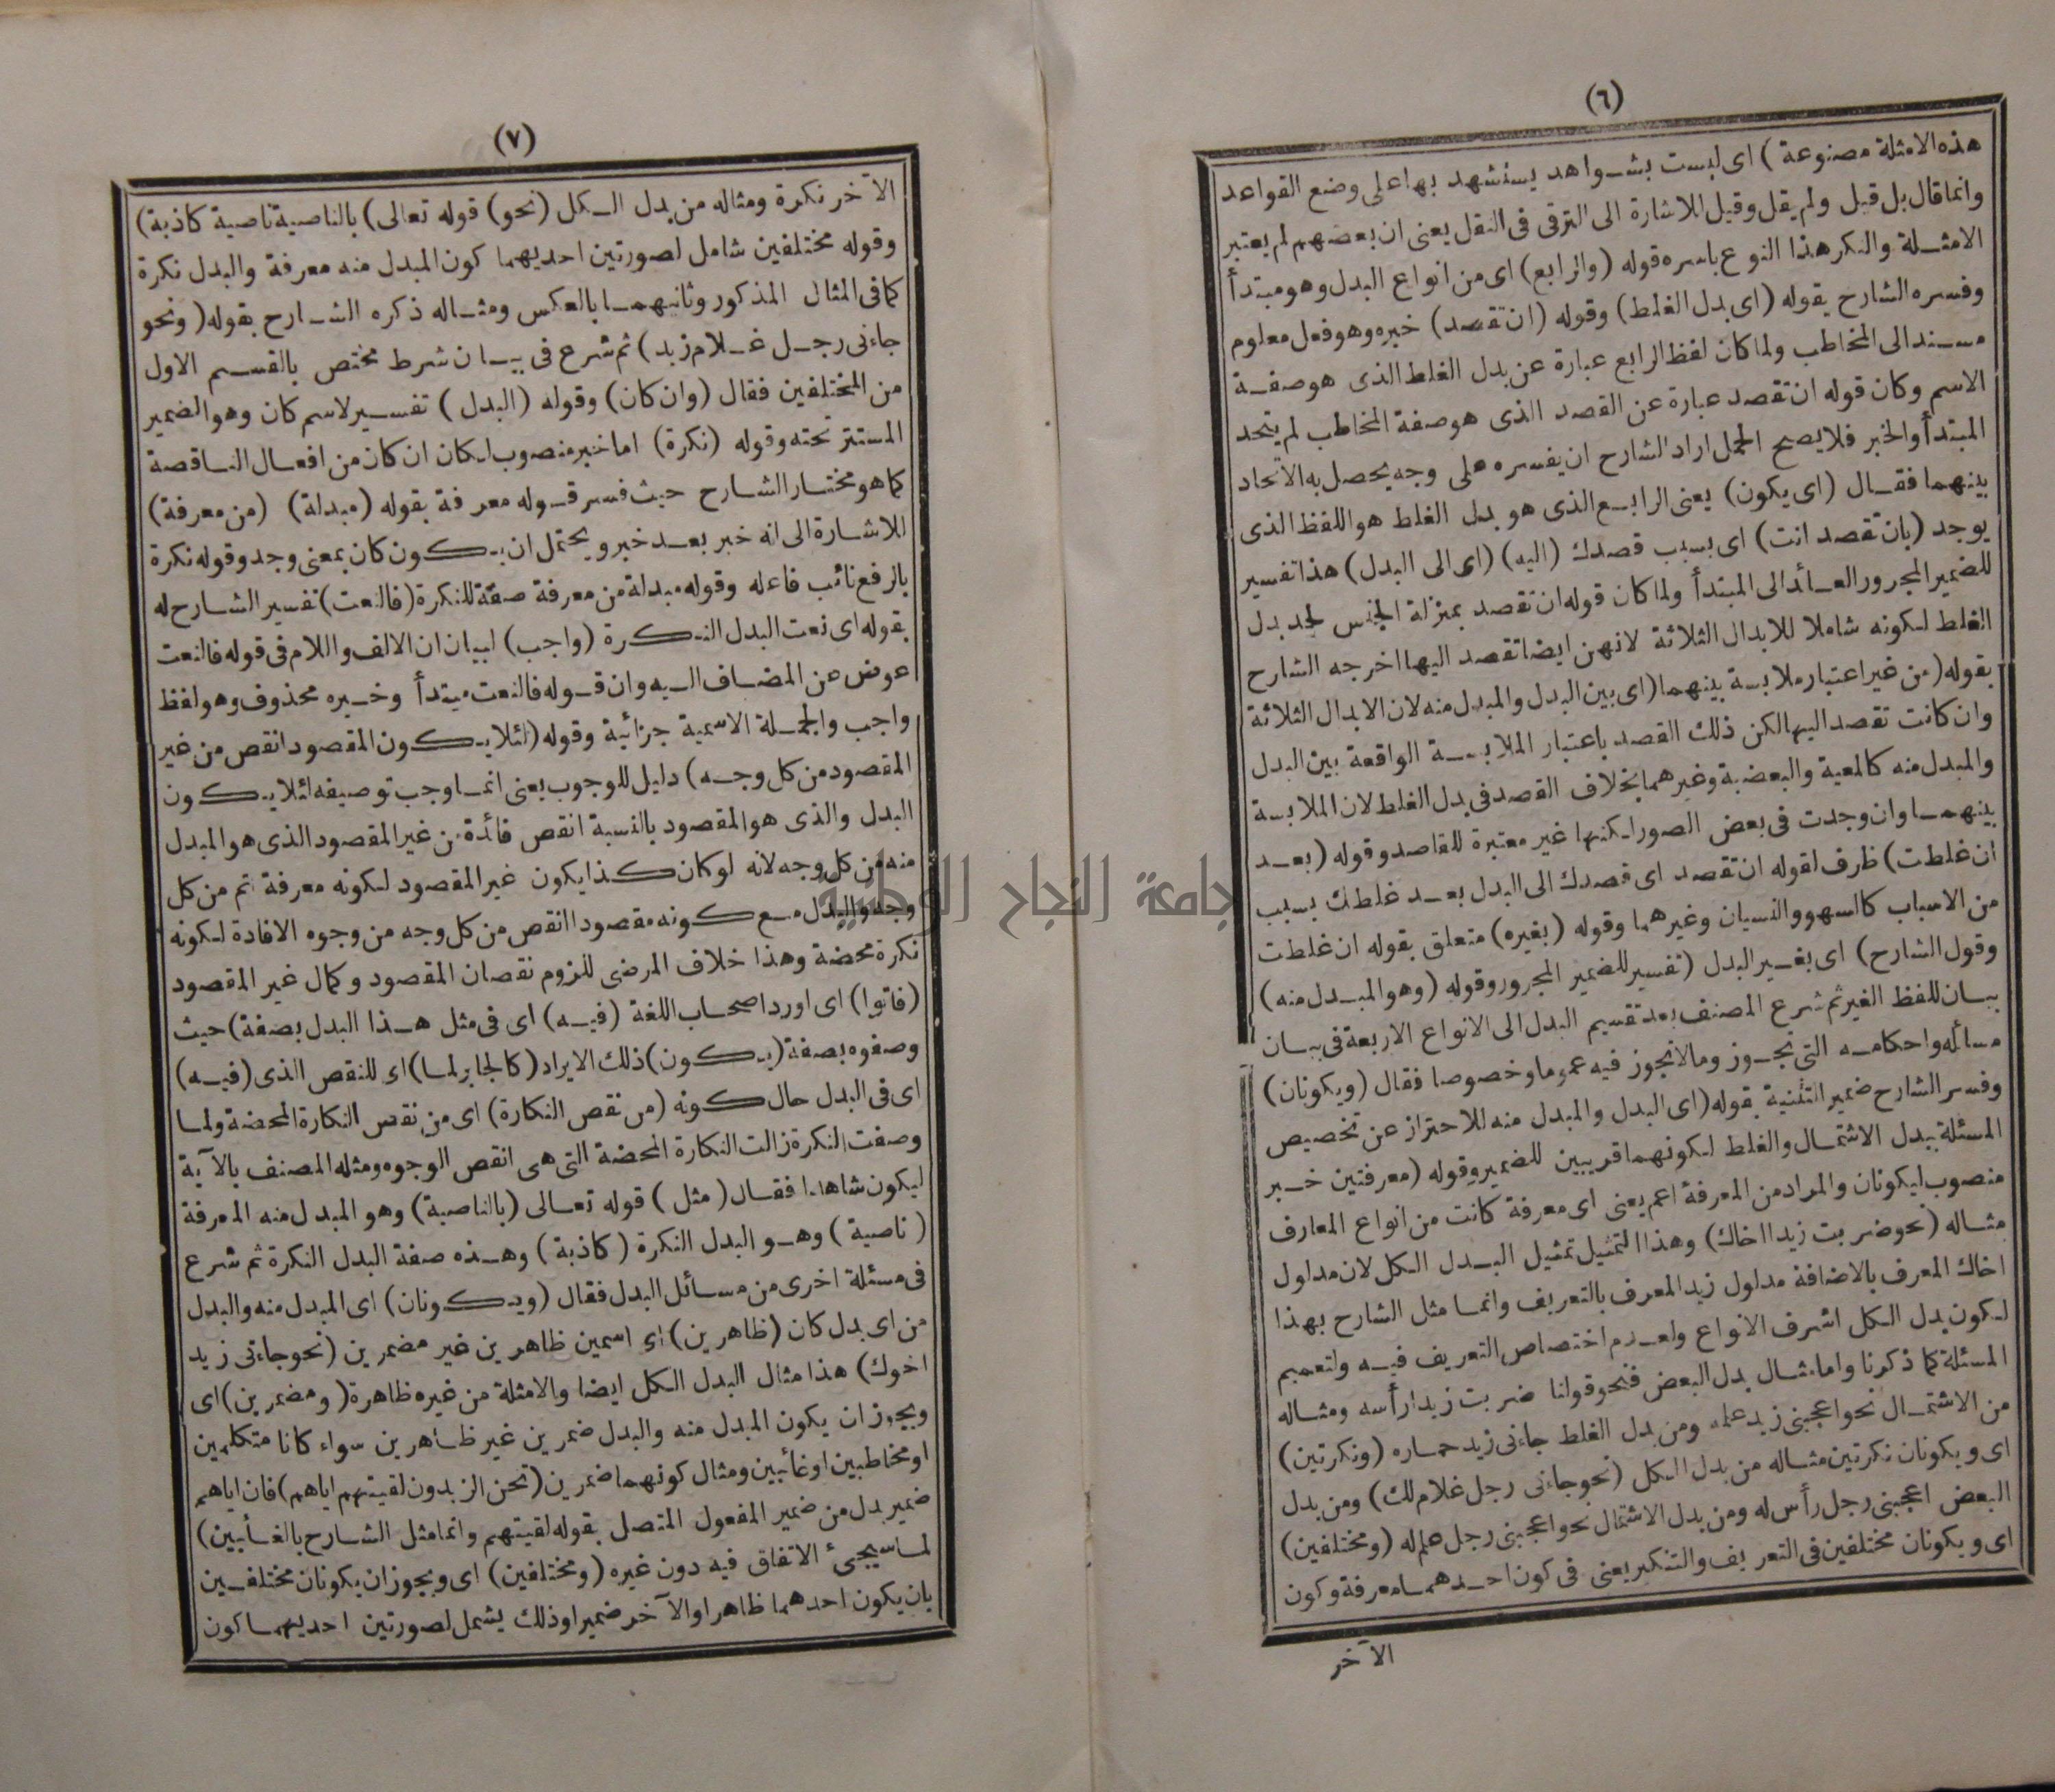 (٦)
هذه الامثلة مصنوعة) اى ليست بشواهد يستشهد بها على وضع القواعد
وانما قال بل قيل ولم يقل وقيل للاشارة الى الترقى فى النقل يعنى ان بعضهم لم يعتبر
الامثلة وانكر هذا النوع باسره قوله (والرابع) اى من انواع البدل وهو مبتدأ
وفسره الشارح بقوله (اى بدل الغلط) وقوله (ان تقصد) خبره وهو فعل معلوم
مسند الى المخاطب ولما كان لفظ الرابع عبارة عن بدل الغلط الذى هو صفة
الاسم وكان قوله ان تقصد عبارة عن القصد الذى هو صفة المخاطب لم يتحد
المبتدأ والخبر فلا يصح الحمل اراد الشارح ان يفسره على وجه يحصل به الاتحاد
بينهما فقال (اى يكون) يعنى الرابع الذى هو بدل الغلط هو اللفظ الذى
يوجد (بان تقصد انت) اى بسبب قصدك (اليه) (اى الى البدل) هذا تفسير
للضمير المجرور العائد الى المبتدأ ولما كان قوله ان تقصد بمنزلة الجنس لحد بدل
الغلط لكونه شاملا للابدال الثلاثة لانهن ايضا تقصد اليها اخرجه الشارح
بقوله (من غير اعتبار ملابسة بينهما (اى بين البدل والمبدل منه لان الابدال الثلاثة
وان كانت تقصد اليها لكن ذلك القصد باعتبار الملابسة الواقعة بين البدل
والمبدل منه كالمعية والبعضية وغيرهما بخلاف القصد فى بدل الغلط لان الملابسة
بينهما وان وجدت فى بعض الصور لكنها غير معتبرة للقاصد وقوله (بعد
ان غلطت) ظرف لقوله ان تقصد اى قصدك الى البدل بعد غلطك بسبب
من الاسباب كالسهو والنسيان وغيرهما وقوله (بغيره) متعلق بقوله ان غلطت
وقول الشارح) اى بغير البدل (تفسير للضمير المجرور وقوله (وهو المبدل منه)
بيان للفظ الغير ثم شرع المصنف بعد تقسيم البدل الى الانواع الاربعة فى بيان
مسائله واحكامه التى تجوز ومالاتجوز فيه عموما وخصوصا فقال (ويكونان)
وفسر الشارح ضمير التثنية بقوله (اى البدل والمبدل منه للاحتراز عن تخصيص
المسئلة ببدل الاشتمال والغلط لكونهما قريبين للضمير وقوله (معرفتين خبر
منصوب ليكونان والمراد من المعرفة اعم يعنى اى معرفة كانت من انواع المعارف
مثاله (نحو ضربت زيدا اخاك) وهذا التمثيل تمثيل البدل الكل لان مدلول
اخاك المعرف بالاضافة مدلول زيد المعرف بالتعريف وانما مثل الشارح بهذا
لكون بدل الكل اشرف الانواع ولعدم اختصاص التعريف فيه ولتعميم
المسئلة كما ذكرنا واما مثال بدل البعض فنحو قولنا ضربت زيدا رأسه ومثاله
من الاشتمال نحو اعجبنى زيد علمه ومن بدل الغلط جاءنى زيد حماره (ونكرتين)
اى ويكونان نكرتين مثاله من بدل الكل (نحو جاءنى رجل غلام لك) ومن بدل
البعض اعجبنى رجل رأس له ومن بدل الاشتمال نحو اعجبنى رجل علم له (ومختلفين)
اى ويكونان مختلفين فى التعريف والتنكير يعنى فى كون احدهما معرفة وكون
الآخر
(٧)
الآخر نكرة ومثاله من بدل الكل (نحو) قوله تعالى) بالناصية ناصية كاذبة)
وقوله مختلفين شامل لصورتين احديهما كون المبدل منه معرفة والبدل نكرة
كما فى المثال المذكور وثانيهما بالعكس ومثاله ذكره الشارح بقوله (ونحو
جاءنى رجل غلام زيد) ثم شرع فى بيان شرط مختص بالقسم الاول
من المختلفين فقال (وان كان) وقوله (البدل) تفسير لاسم كان وهو الضمير
المستتر تحته وقوله (نكرة) اما خبر منصوب لكان ان كان من افعال الناقصة
كما هو مختار الشارح حيث فسر قوله معرفة بقوله (مبدلة) (من معرفة)
للاشارة الى انه خبر بعد خبر ويحتمل ان يكون كان بمعنى وجد وقوله نكرة
بالرفع نائب فاعله وقوله مبدلة من معرفة صفة للنكرة (فالنعت) تفسير الشارح له
بقوله اى نعت البدل النكرة (واجب) لبيان ان الالف واللام فى قوله فالنعت
عوض عن المضاف اليه وان قوله فالنعت مبتدأ وخبره محذوف وهو لفظ
واجب والجملة الاسمية جزائية وقوله (لئلا يكون المقصود انقص من غير
المقصود من كل وجه) دليل للوجوب يعنى انما وجب توصيفه لئلا يكون
البدل والذى هو المقصود بالنسبة انقص فائدة من غير المقصود الذى هو المبدل
منه من كل وجه لانه لو كان كذا يكون غير المقصود لكونه معرفة اتم من كل
وجه والبدل مع كونه مقصودا انقص من كل وجه من وجوه الافادة لكونه
نكرة محضة وهذا خلاف المرضى للزوم نقصان المقصود وكمال غير المقصود
(فاتوا) اى اورد اصحاب اللغة (فيه) اى فى مثل هذا البدل بصفة) حيث
وصفوه بصفة (يكون) ذلك الايراد (كالجابر لما) اى للنقص الذى (فيه)
اى فى البدل حال كونه (من نقص النكارة) اى من نقص النكارة المحضة ولما
وصفت النكرة زالت النكارة المحضة التى هى انقص الوجوه ومثله المصنف بالآية
ليكون شاهدا فقال (مثل) قوله تعالى (بالناصية) وهو المبدل منه المعرفة
(ناصية) وهو البدل النكرة (كاذبة) وهذه صفة البدل النكرة ثم شرع
فى مسئلة اخرى من مسائل البدل فقال (ويكونان) اى المبدل منه والبدل
من اى بدل كان (ظاهرين) اى اسمين ظاهرين غير مضمرين (نحو جاءنى زيد
اخوك) هذا مثال البدل الكل ايضا والامثلة من غيره ظاهرة (ومضمرين) اى
ويجوز ان يكون المبدل منه والبدل ضمرين غير ظاهرين سواء كانا متكلمين
او مخاطبين او غائبين ومثال كونهما ضمرين (نحن الزيدون لقيتهم اياهم) فان اياهم
ضمير بدل من ضمير المفعول المتصل بقوله لقيتهم وانما مثل الشارح بالغائبين)
لما سيجىء الاتفاق فيه دون غيره (ومختلفين) اى ويجوز ان يكونان مختلفين
بان يكون احدهما ظاهرا والآخر ضميرا وذلك يشمل لصورتين احديهما كون
جامعة النجاح الوطنية